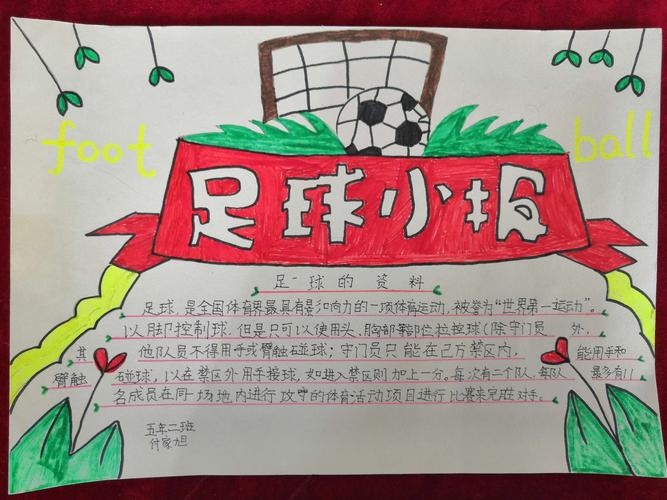 foot ball
足球小报
足球的资料
足球,是全国体育界最具有影响向力的一项体育运动,被誉为“世界第一运动”。
以脚控制球.但是只可以使用头、胸部等部位拉控球(除守门员 外,
其 他队员不得用手或臂触碰球;守门员只能在己方禁区内, 能用手和
臂触 碰球,以在禁区外用手接球,如进入禁区则加上一分。每次有二个队,每队 最多有11
名成员在同一场地内进行攻守的体育活动项目进行比赛来 对手。
五年二班
付家旭